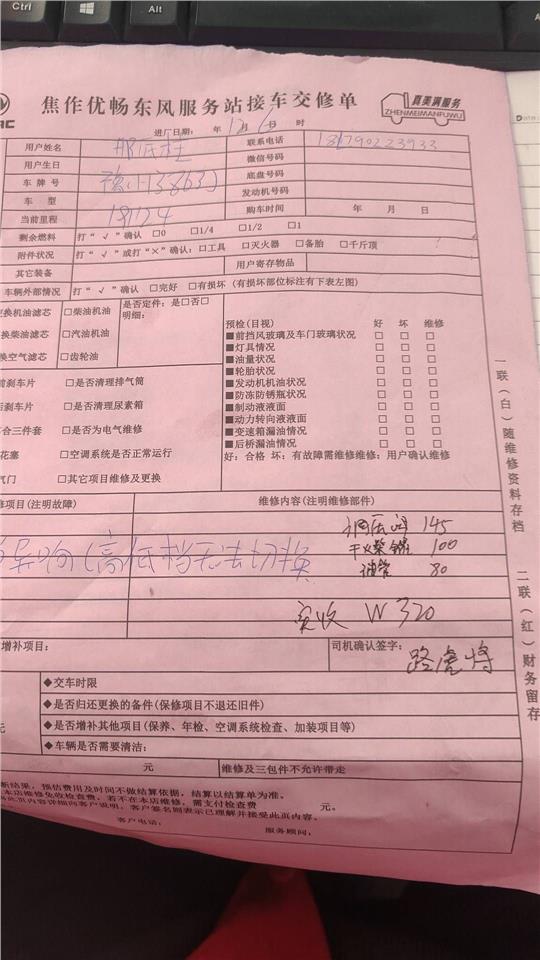 Ctrl
Alt
焦作优畅东风服务站接车交修单
真美满服务
ZHENMEIMANFUWU
进厂日期: 年 12 月 6 日 时
用户姓名 联系电话
用户生日 微信号码
车牌号 底盘号码
车 型 发动机号码
当前里程 18124 购车时间 年 月 日
剩余燃料 打“√”确认 □0 □1/4 □1/2 □1
附件状况 打“√”或打“×”确认: □工具 □灭火器 □备胎 □千斤顶
其它装备 用户寄存物品
车辆外部情况 打“√”确认 □完好 □有损坏 (有损坏部位标注有下表左图)
更换机油滤芯 □柴油机油 是否定件: 是□否□
换柴油滤芯 □汽油机油 明细:
换空气滤芯 □齿轮油
预检(目视) 好 坏 维修
■前挡风玻璃及车门玻璃状况 □ □ □
■灯具情况 □ □ □
■油量状况 □ □ □
■轮胎状况 □ □ □
■发动机机油状况 □ □ □
■防冻防锈瓶状况 □ □ □
■制动液液面 □ □ □
■动力转向液液面 □ □ □
■变速箱漏油情况 □ □ □
■后桥漏油情况 □ □ □
好: 合格 坏: 有故障需维修维修: 用户确认维修
前刹车片 □是否清理排气筒
后刹车片 □是否清理尿素箱
离合三件套 □是否为电气维修
火花塞 □空调系统是否正常运行
气门 □其它项目维修及更换
修项目(注明故障) 维修内容(注明维修部件)
调压阀 145
干燥罐 100
异响(高低档无法切换
油管 80
实收 W 320
增补项目: 司机确认签字:
路虎将
◆交车时限
◆是否归还更换的备件(保修项目不退还旧件)
◆是否增补其他项目(保养、年检、空调系统检查、加装项目等)
元
◆车辆是否需要清洁:
元 维修及三包件不允许带走
断结果,预估费用及时间不做结算依据,结算以结算单为准。
本店维修免收检查费。若不在本店维修,需支付检查费 元。
此页内容详细向客户说明,客户签名则表示已理解并接受此页内容。
客户电话: 服务顾问:
一联(白)随维修资料存档
二联(红)财务留存